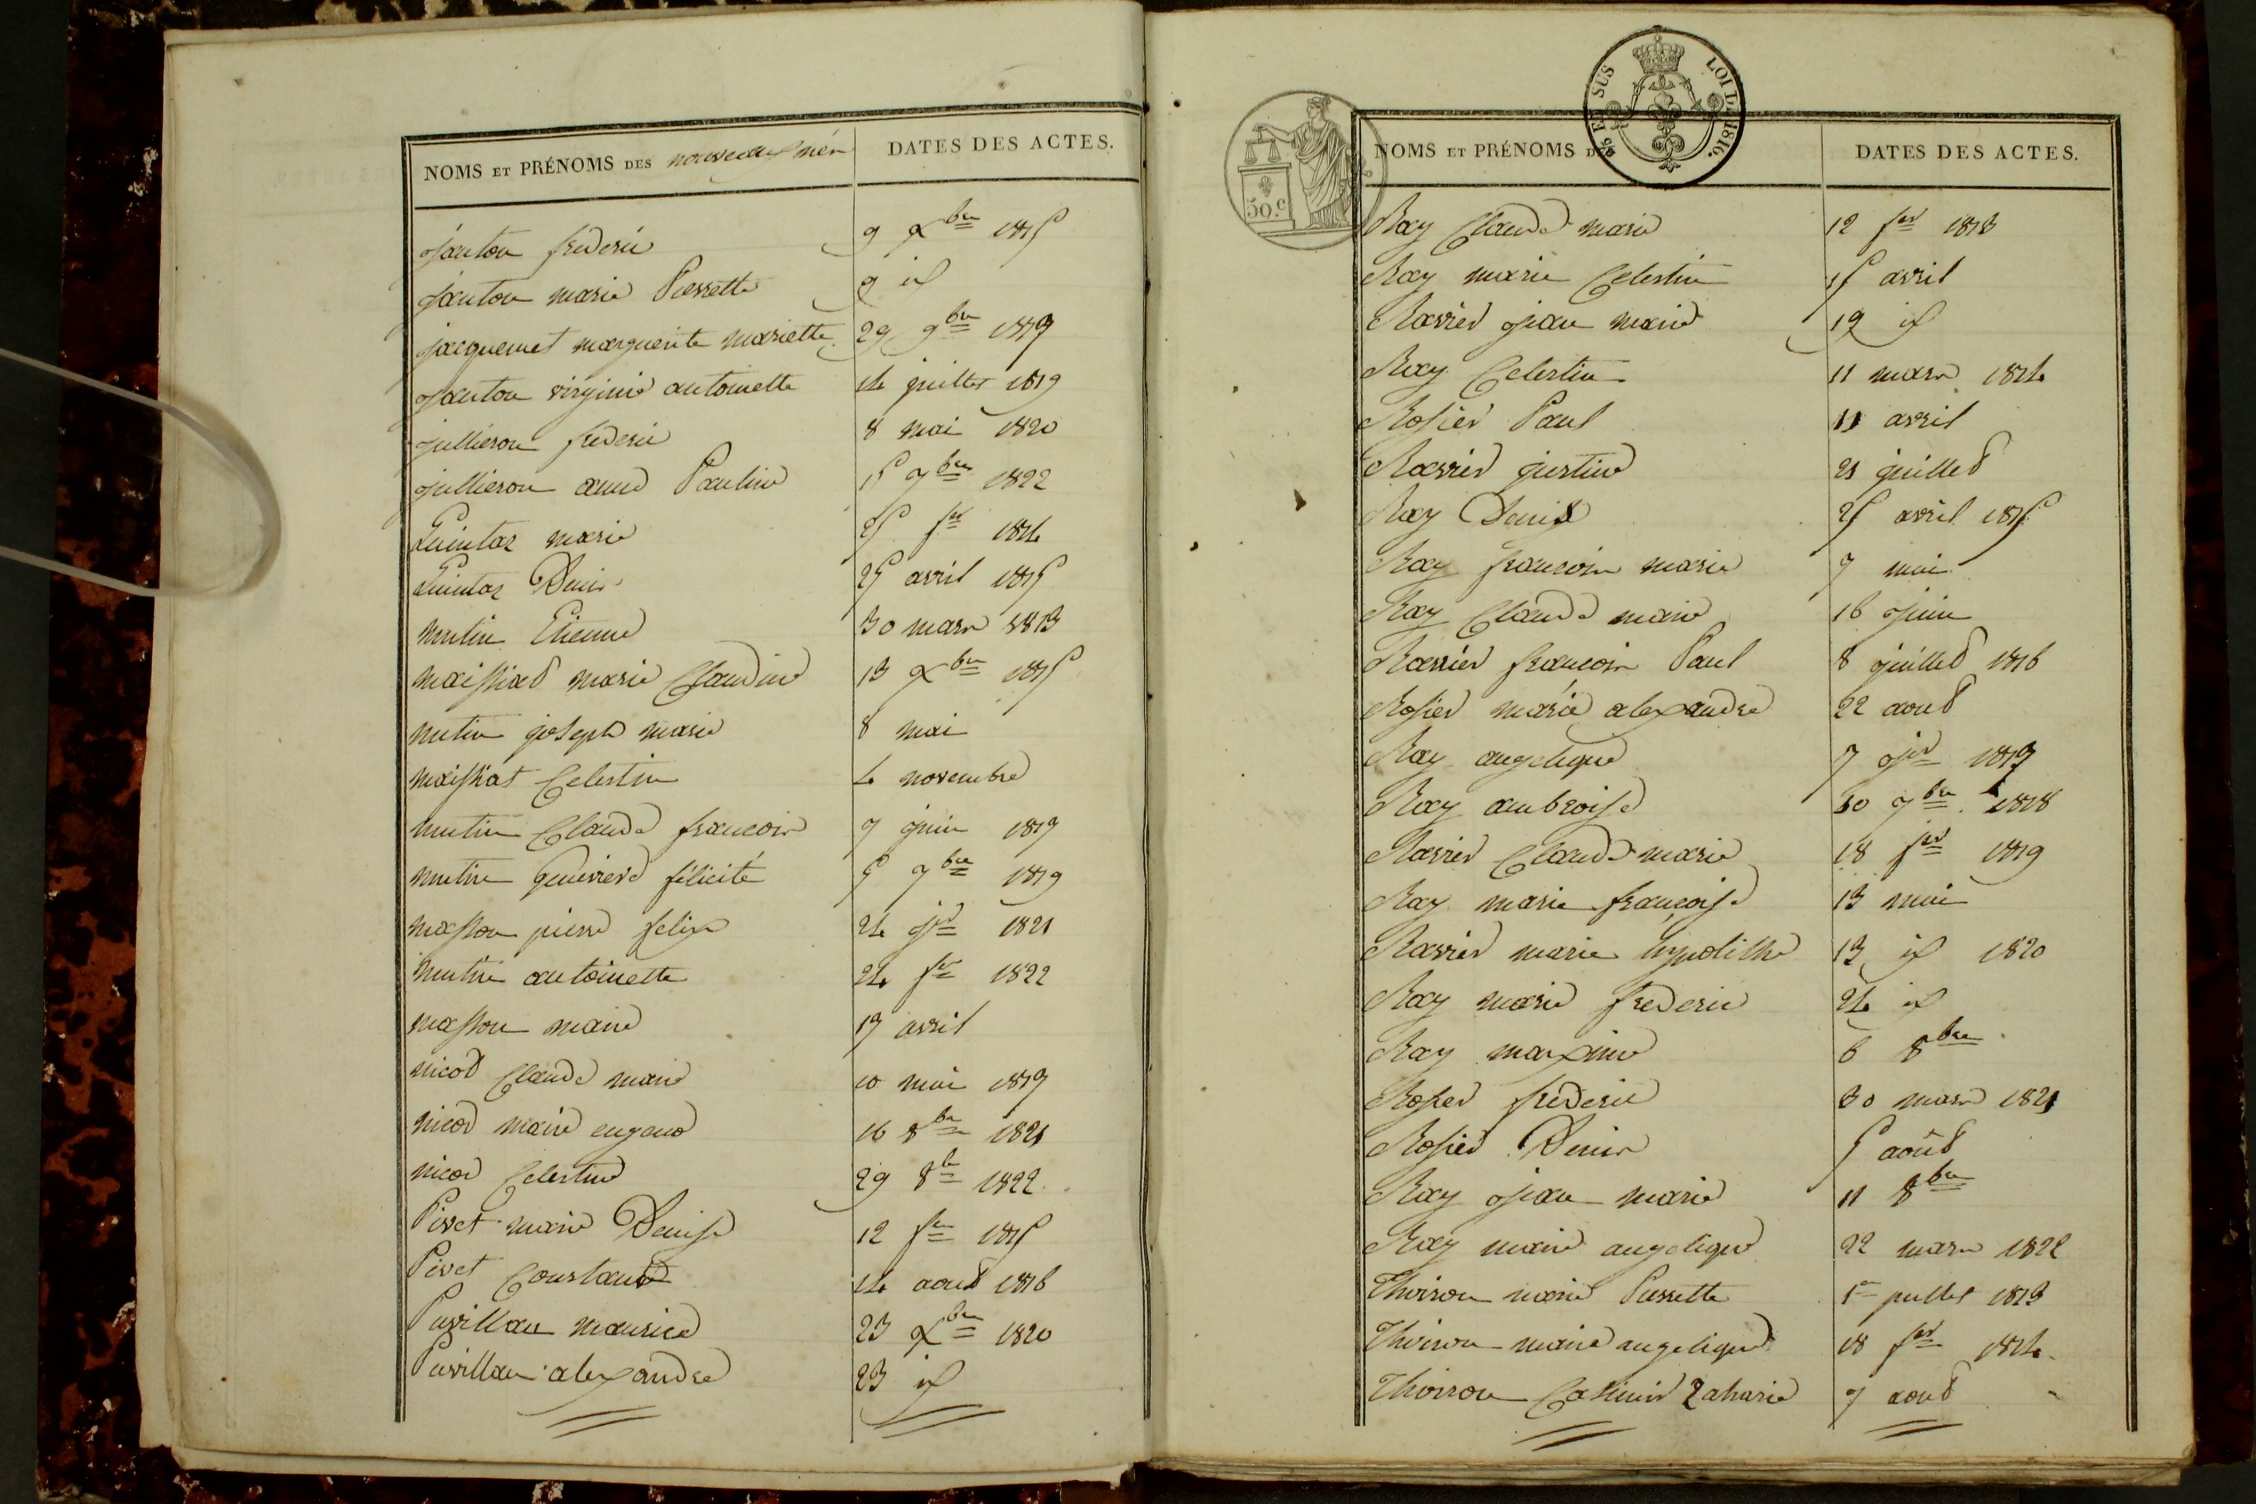 NOMS ET PRÉNOMS DES nouveaux nés DATES DES ACTES.
janton frédéric 9 Xbre 1815
janton marie Pierrette 9 id
jacquemet marguerite mariette 29 9bre 1817
janton virginie antoinette 14 juillet 1819
jullieron frederic 8 mai 1820
jullieron anne Pauline 15 7bre 1822
Quintaz marie 25 fer 1814
Quintaz Denis 25 avril 1815
mutin Etienne 30 mars 1813
maissiad marie Claudine 13 Xbre 1815
mutin joseph marie 8 mai
maissiat Celestin 4 novembre
mutin Claude francois 7 juin 1817
mutin genevieve félicité 5 7bre 1819
masson pierre felix 24 jer 1821
mutin antoinette 24 fer 1822
masson marie 17 avril
nicod Claude marie 10 mai 1819
nicod marie eugene 16 8bre 1821
nicod Celestine 29 8bre 1822
Pivet marie Denise 12 fer 1815
Pivet Constant 14 aout 1816
Puvillan maurice 23 Xbre 1820
Puvillan alexandre 23 id
25 ET SUS LOI DE 1816.
50.c
NOMS ET PRÉNOMS DES DATES DES ACTES.
Ray Claude marie 12 fer 1813
Ray marie Celestin 15 avril
Ravier jean marie 19 id
Ray Celestin 11 mars 1814
Rosier Paul 11 avril
Ravier justine 21 juilled
Ray Denis 25 avril 1815
Ray francois marie 7 mai
Ray Claude marie 16 juin
Ravier francois Paul 8 juilled 1816
Rosier marie alexandre 22 aoud
Ray angelique 7 jer 1817
Ray ambroise 30 7bre 1818
Ravier Claude marie 18 jer 1819
Ray marie françoise 13 mai
Ravier marie hypolithe 13 id 1820
Ray marie frederic 24 id
Ray maxime 6 8bre
Rosier frederic 30 mars 1821
Rosier Denis 5 août
Ray jean marie 11 8bre
Ray marie angelique 22 mars 1822
Thoiron marie Pierrette 1er juillet 1813
Thoiron marie angelique 18 fer 1814
Thoiron Casimir Zaharie 7 aoud